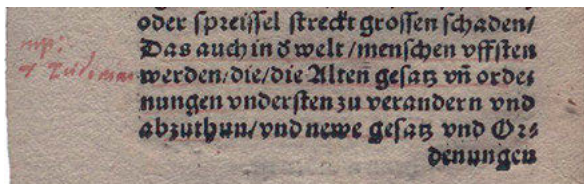 oder spreissel streckt grossen schaden/
Das auch in d̕ welt/menschen vffsten
werden/die/die Alten gesatz vn̄ ordes
nungen vndersten zu verandern vnd
abzuthun/vnd newe gesatz vnd Or⸗
denungen